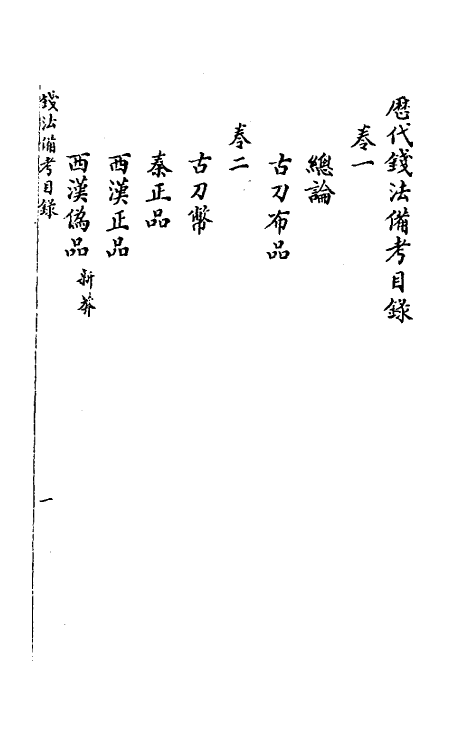 歴代錢法備考目錄
卷一
總論
古刀布品
卷二
古刀幣
秦正品
西漢正品
西漢僞品 新莽
錢法備考目錄 一